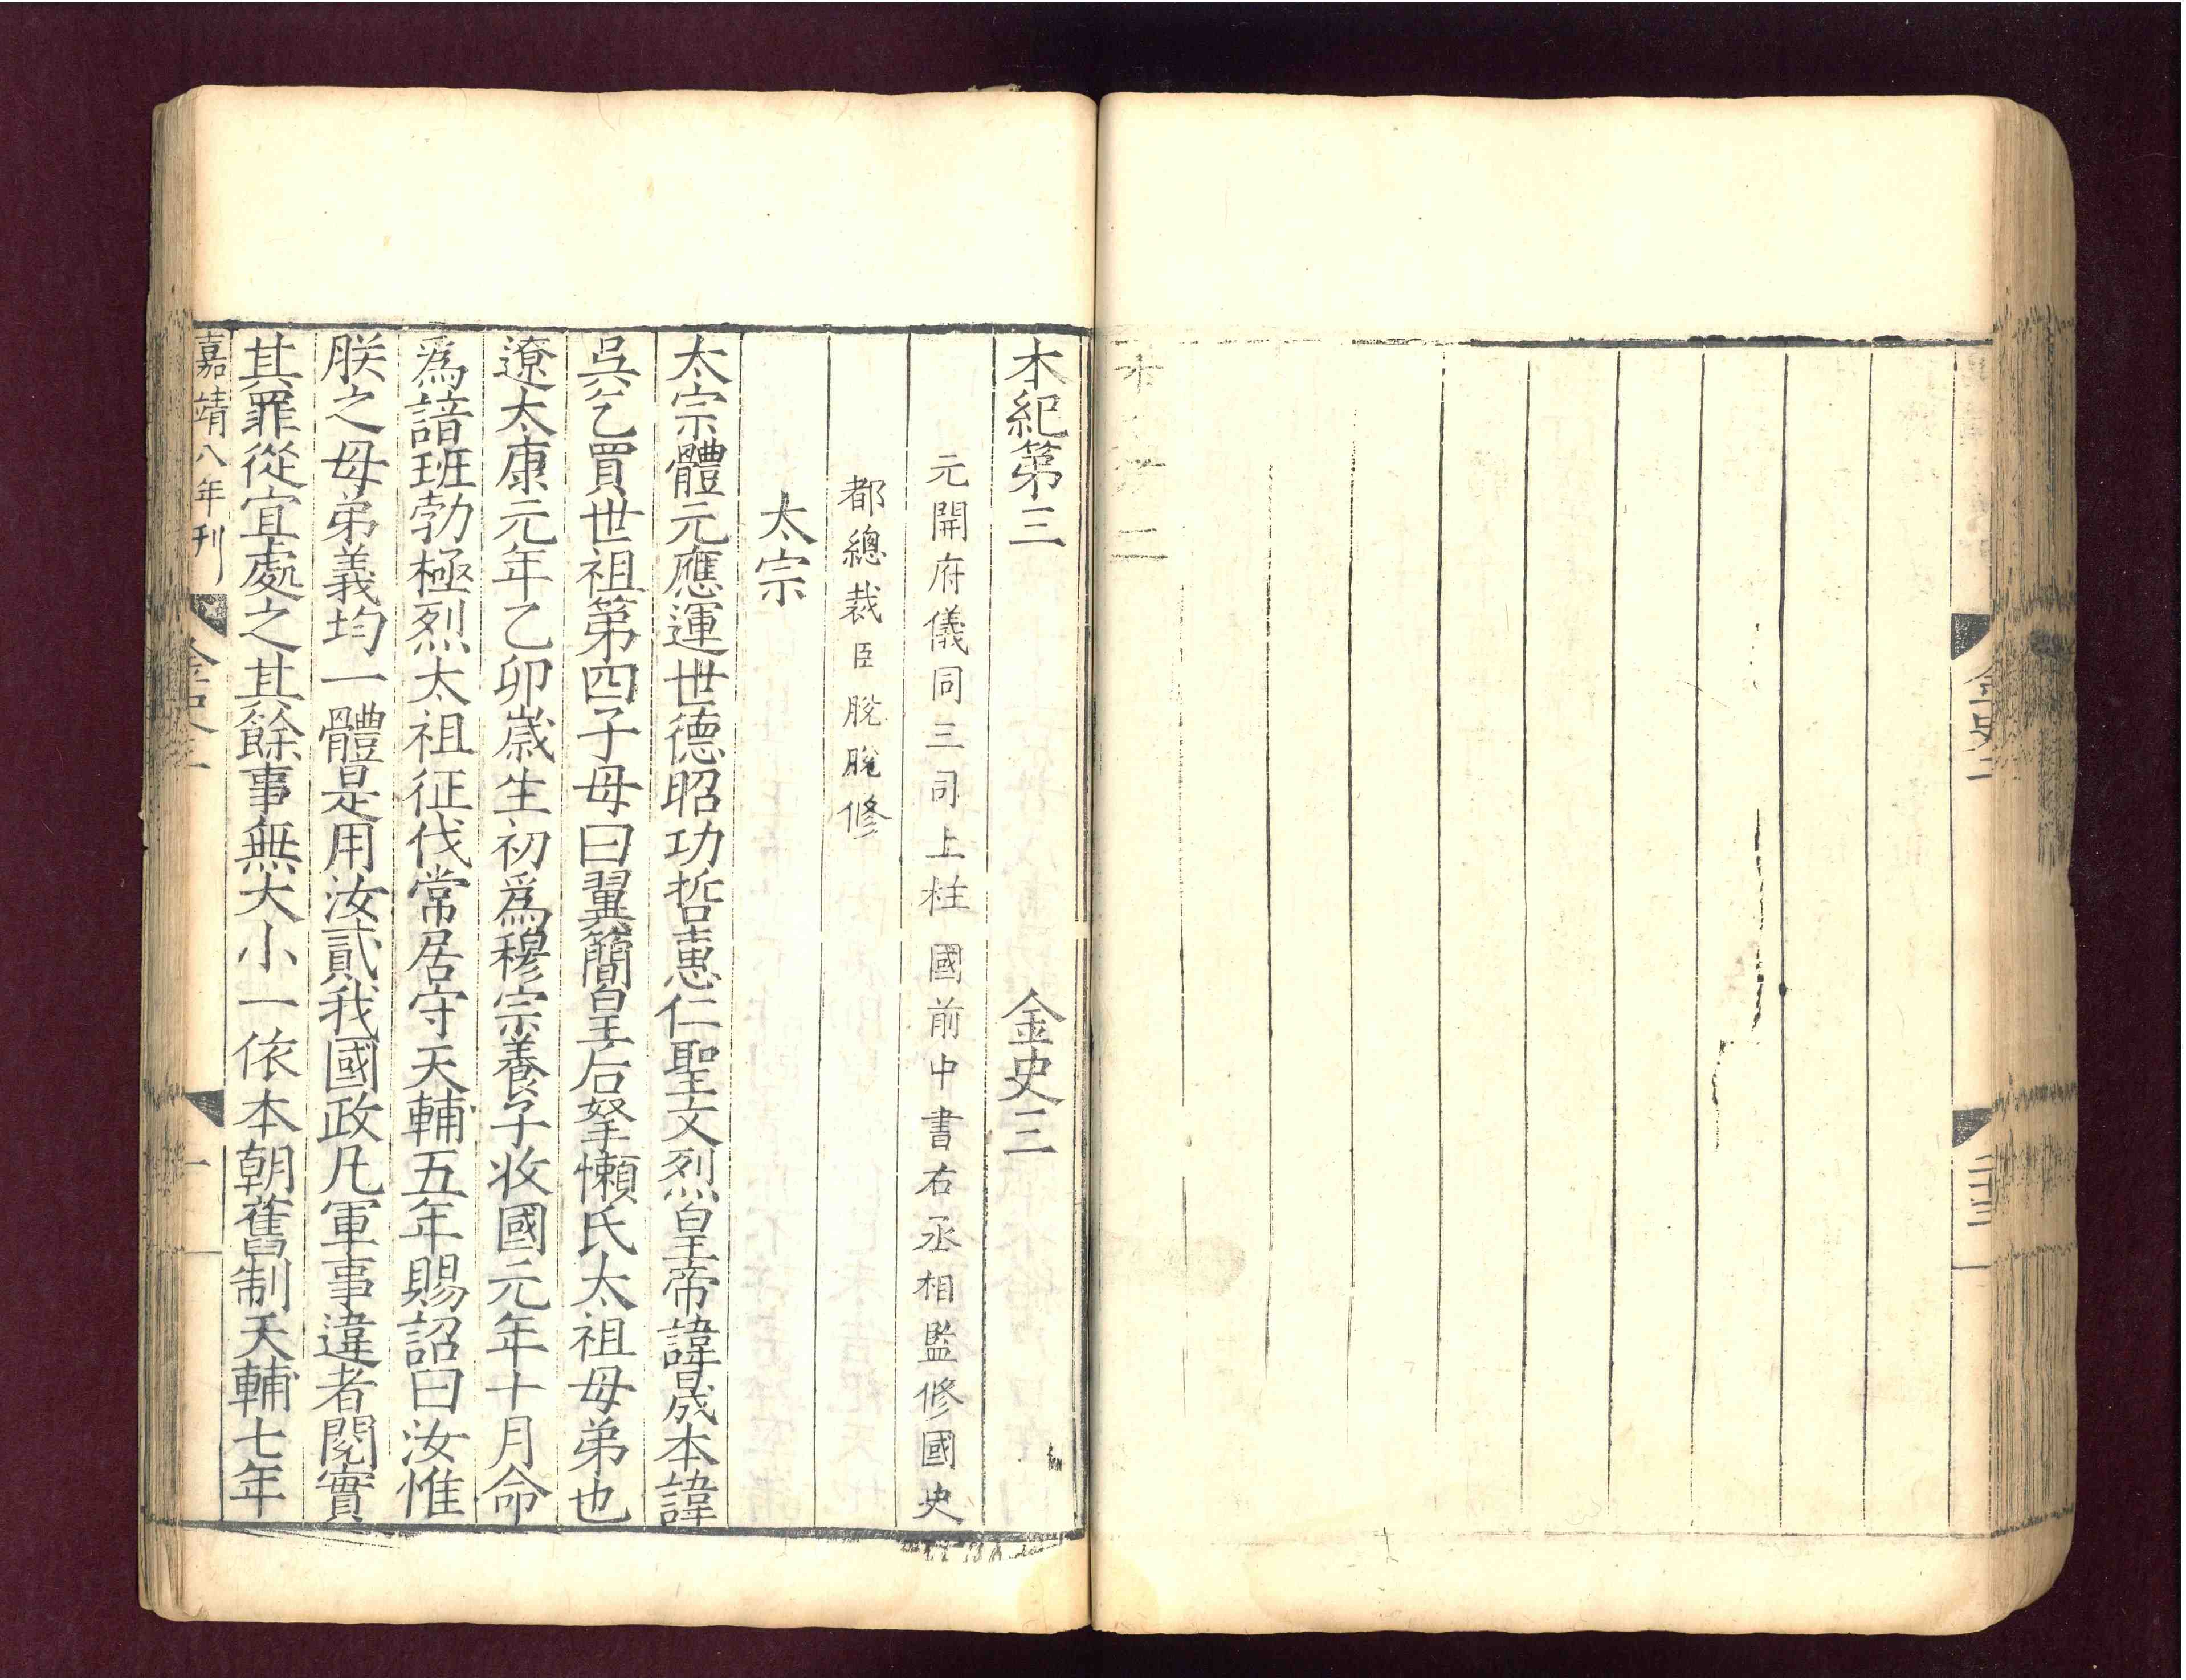 金史二
二十三
本紀第二
本紀第三 金史三
元開府儀同三司上柱國前中書右丞相監修國史
都總裁臣脫脫修
太宗
太宗體元應運世德昭功哲惠仁聖文烈皇帝諱晟本諱
吳乞買世祖第四子母曰翼簡皇后拏懶氏太祖母弟也
遼太康元年乙卯歲生初爲穆宗養子收國元年十月命
爲諳班勃極烈太祖征伐常居守天輔五年賜詔曰汝惟
朕之母弟義均一體是用汝貳我國政凡軍事違者閱實
其罪從宜處之其餘事無大小一依本朝舊制天輔七年
嘉靖八年刊
金史三
一